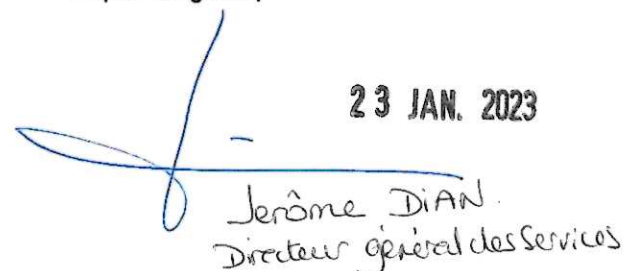 23 JAN. 2023
Jerôme DiAN
Directeur général des Services